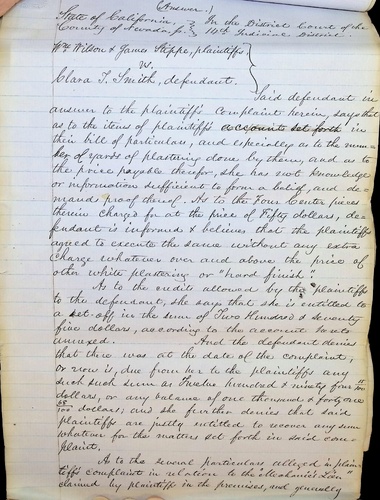 (Answer.)
State of California, } In the District Court of the
County of Nevada, ss. } 14th Judicial District
Wm Wilson & James Skipse, plaintiffs
vs.
Clara T. Smith, defendant.
Said defendant in
answer to the plaintiffs complaint herein, says that
as to the items of plaintiffs accounts set forth in
their bill of particulars, and especially as to the num-
ber of yards of plastering done by them, and as to
the price payable therefor, she has not knowledge
or information sufficient to form a belief, and de-
mands proof thereof. As to the Four Center pieces
therein charged for at the price of Fifty dollars, de-
fendant is informed & believes that the plaintiffs
agreed to execute the same without any extra
charge whatever over and above the price of
other white plastering or "hard finish".
As to the credit allowed by the plaintiffs
to the defendant, she says that she is entitled to
a set-off in the sum of Two Hundred & seventy
five dollars, according to the account hereto
annexed. And the defendant denies
that there was at the date of the complaint,
or now is, due from her to the plaintiffs any
such sum as Twelve hundred & ninety four
dollars, or any balance of one thousand & forty one
68/100 dollars; and she further denies that said
plaintiffs are justly entitled to recover any sum
whatever for the matters set forth in said com-
plaint.
As to the several particulars alleged in plain-
tiffs complaint in relation to the Mechanic's Lien
claimed by plaintiffs in the premises, and generally